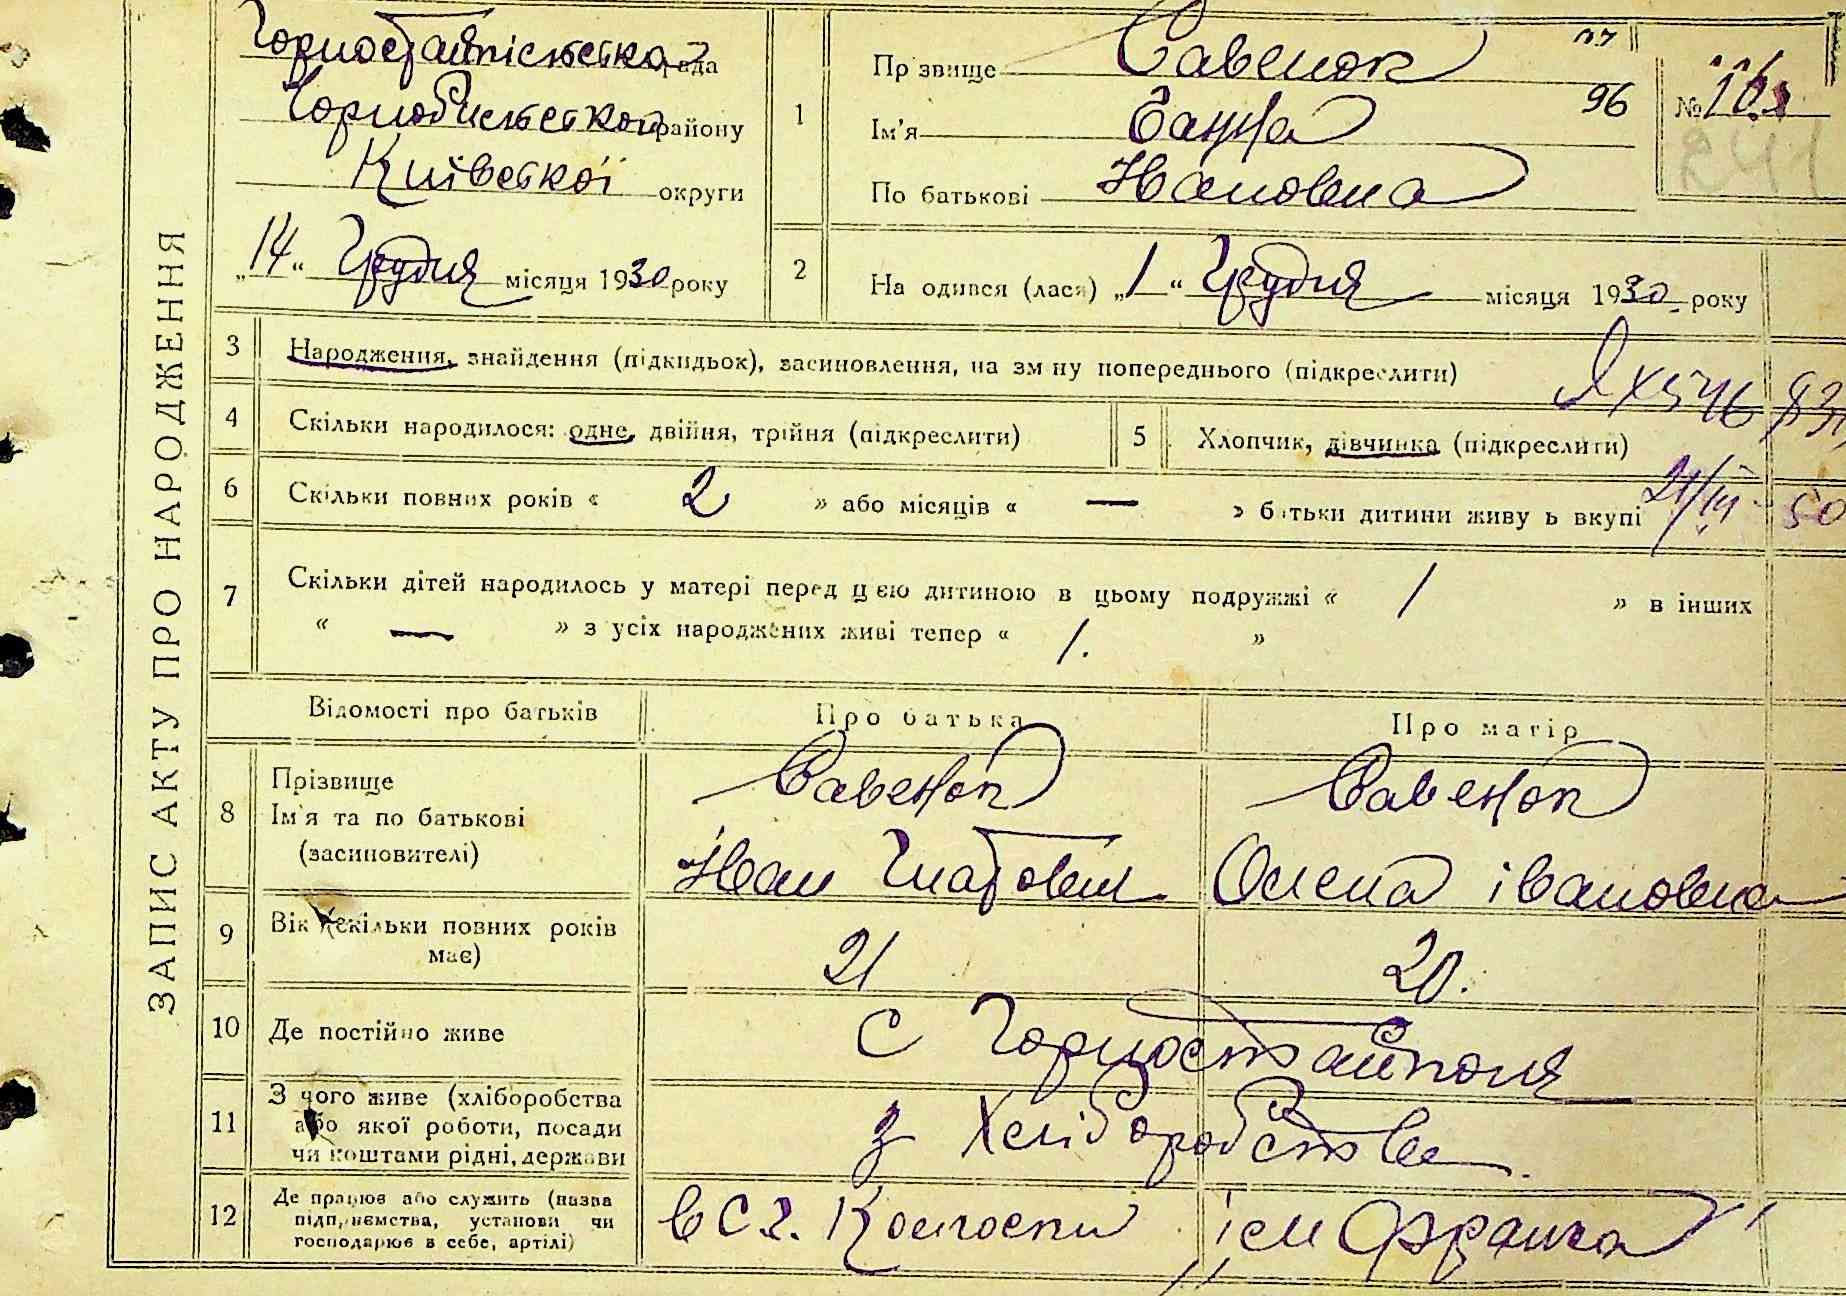 ЗАПИС АКТУ ПРО НАРОДЖЕННЯ
Горностайпільська рада
Чорнобильського району
Київської округи
„14“ Грудня місяця 1930 року
1
Прізвище Савенок
Ім'я Ганна
По батькові Івановна
96
№
241
2
Народився (лася) „1“ Грудня місяця 1930 року
3 Народження, знайдення (підкидьок), засиновлення, на зміну попереднього (підкреслити)
4 Скільки народилося: одне, двійня, трійня (підкреслити)
5 Хлопчик, дівчинка (підкреслити)
6 Скільки повних років « 2 » або місяців « — » батьки дитини живуть вкупі
21/III 50
7 Скільки дітей народилось у матері перед цією дитиною в цьому подружжі « 1 » в інших
« — » з усіх народжених живі тепер « 1. »
Відомості про батьків Про батька Про матір
8 Прізвище Савенок Савенок
Ім'я та по батькові Іван Гнатович Олена Івановна
(засиновителі)
9 Вік (скільки повних років має) 21 20.
10 Де постійно живе с Горностайполя
11 З чого живе (хліборобства
або якої роботи, посади
чи коштами рідні, держави
з Хліборобства
12 Де працює або служить (назва
підприємства, установи чи
господарює в себе, артілі)
в с г. Колгоспи ім Франка